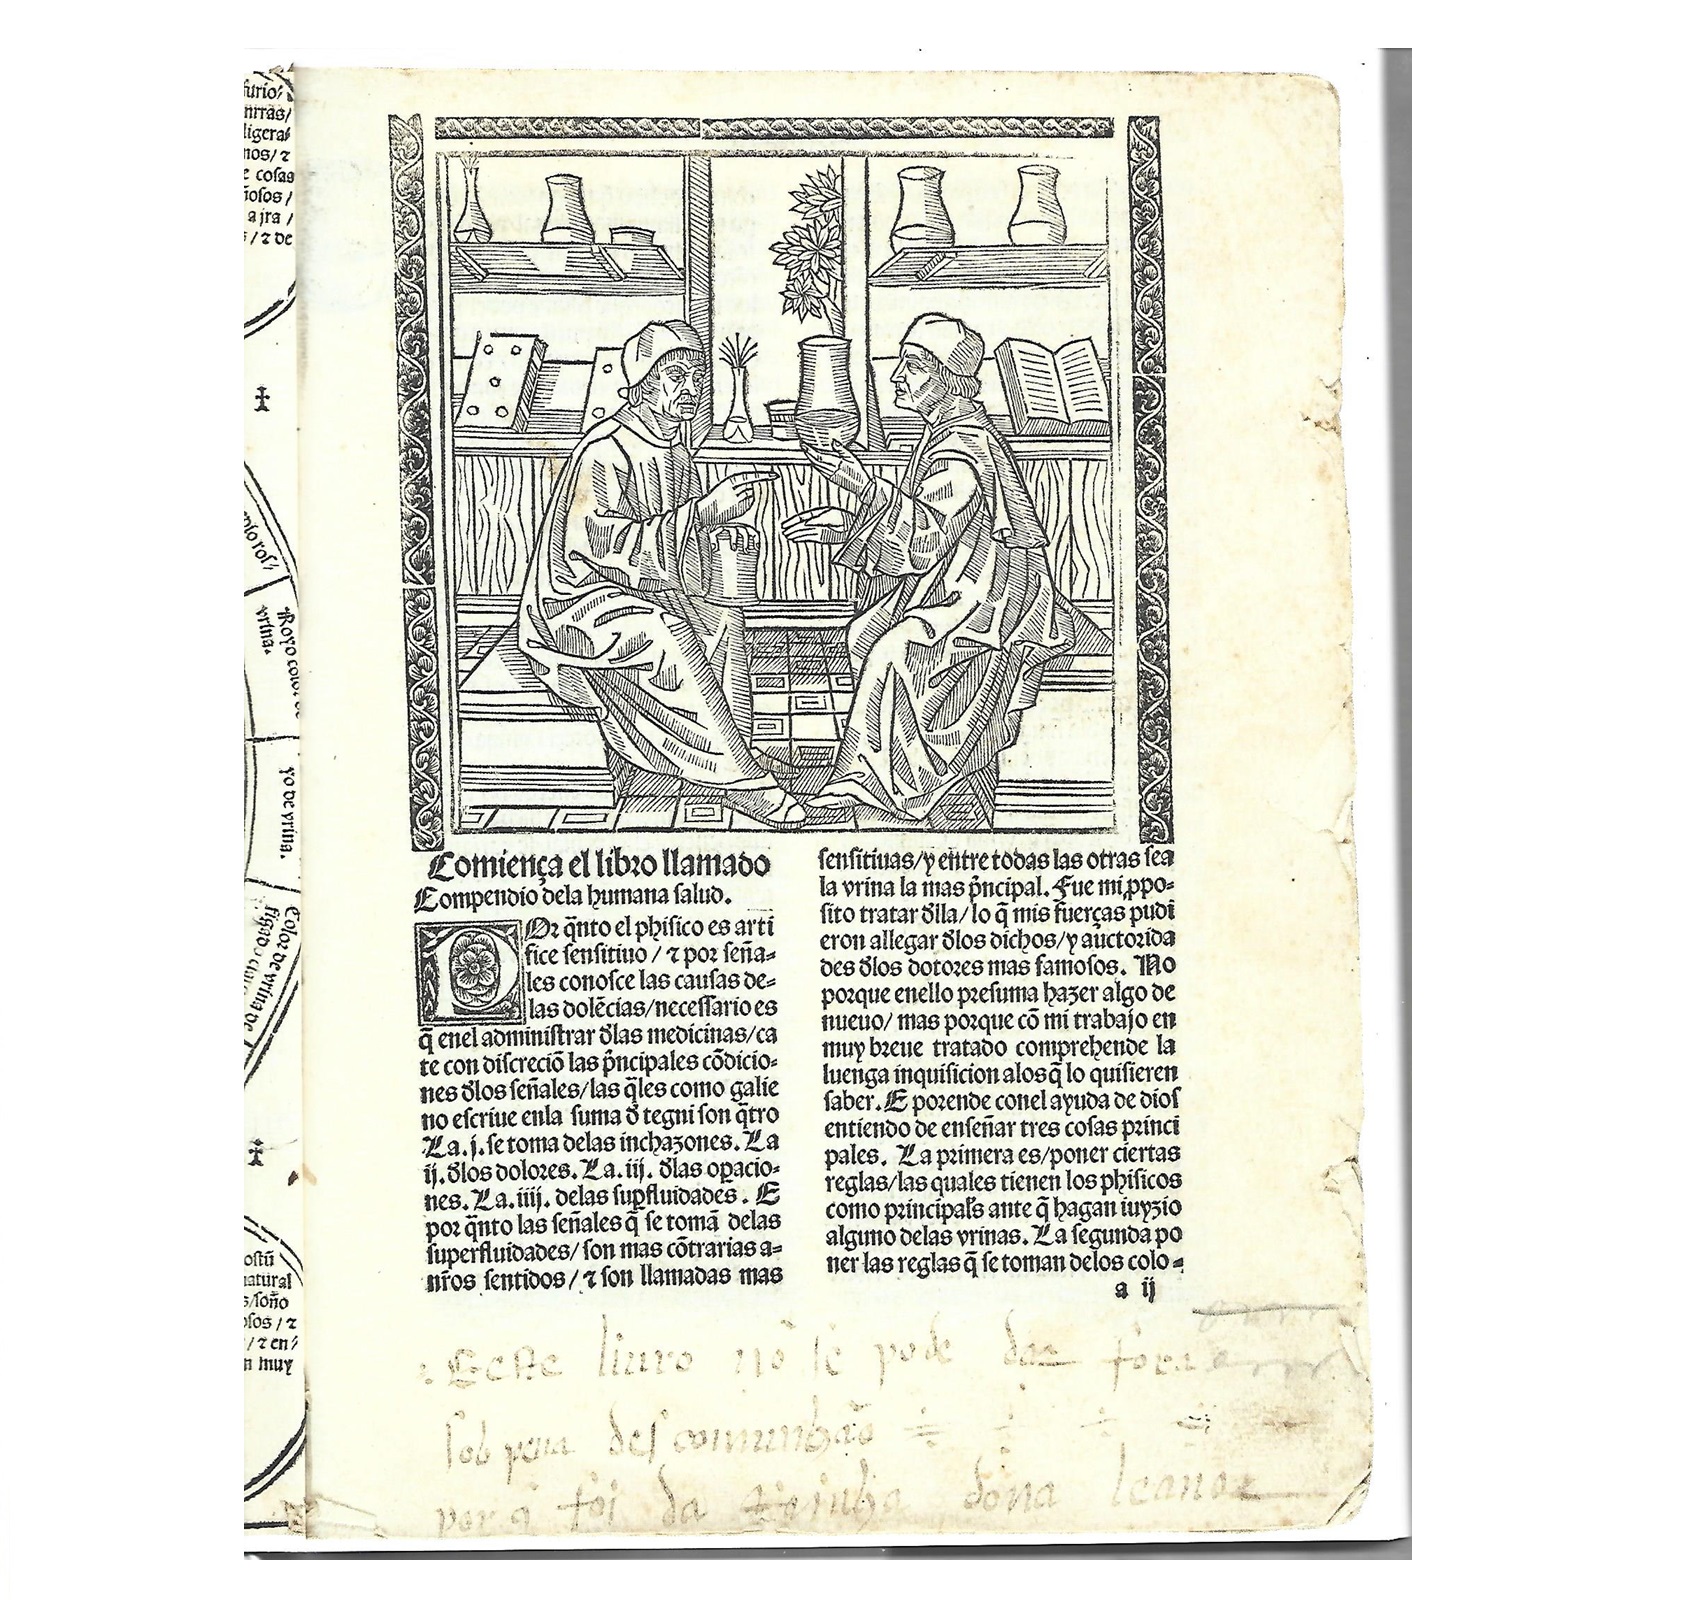 furio/
ligera/
nos/ ⁊
e cosas
ñosos /
a jra /
s / ⁊ de
Royo color de
vrina.
yo de vrina.
Color de vrina de
natural
s/ soño
osos / ⁊
/ ⁊ en/
n muy
Comiença el libro llamado
Compendio dela humana salud.
POr q̃nto el phisico es arti
fice sensitiuo / ⁊ por seña-
les conosce las causas de-
las dolẽcias/necessario es
q̃ enel administrar d̃las medicinas/ca
te con discreciõ las p̃ncipales cõdicio-
nes d̃los señales/las q̃les como galie
no escriue enla suma d̃ tegni son q̃tro
La .j. se toma delas inchazones. La
ij. d̃los dolores. La .iij. d̃las oꝑacio-
nes. La .iiij. delas suꝑfluidades. E
por q̃nto las señales q̃ se tomã delas
superfluidades/ son mas cõtrarias a-
nr̃os sentidos/ ⁊ son llamadas mas
sensitiuas/y entre todas las otras sea
la vrina la mas p̃ncipal. Fue mi ꝓpo-
sito tratar d̃lla/ lo q̃ mis fuerças pudi
eron allegar d̃los dichos/y auctorida
des d̃los dotores mas famosos. No
porque enello presuma hazer algo de
nueuo/ mas porque cõ mi trabajo en
muy breue tratado comprehende la
luenga inquisicion alos q̃ lo quisieren
saber. E porende conel ayuda de dios
entiendo de enseñar tres cosas princi
pales. La primera es/poner ciertas
reglas/las quales tienen los phisicos
como principales ante q̃ hagan iuyzio
alguno delas vrinas. La segunda po
ner las reglas q̃ se toman delos colo-
a ij
Este liuro nõ se pode dar fora
sob pena descomunhão
por q̃ foi da Rainha dona leanor